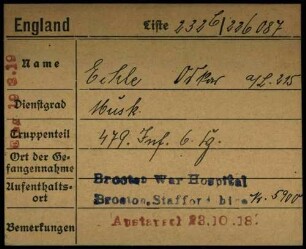 England Liste 232 b/226 087
Name Eckle Oskar a/L. 215
Dienstgrad Musk
Truppenteil 479 Inf. 6 Kg.
Ort der Ge-
fangennahme
Aufenthalts-
ort
Brocton War Hospital
Brocton, Stafford Nr. 5900
Bemerkungen Austausch 28.10.18.